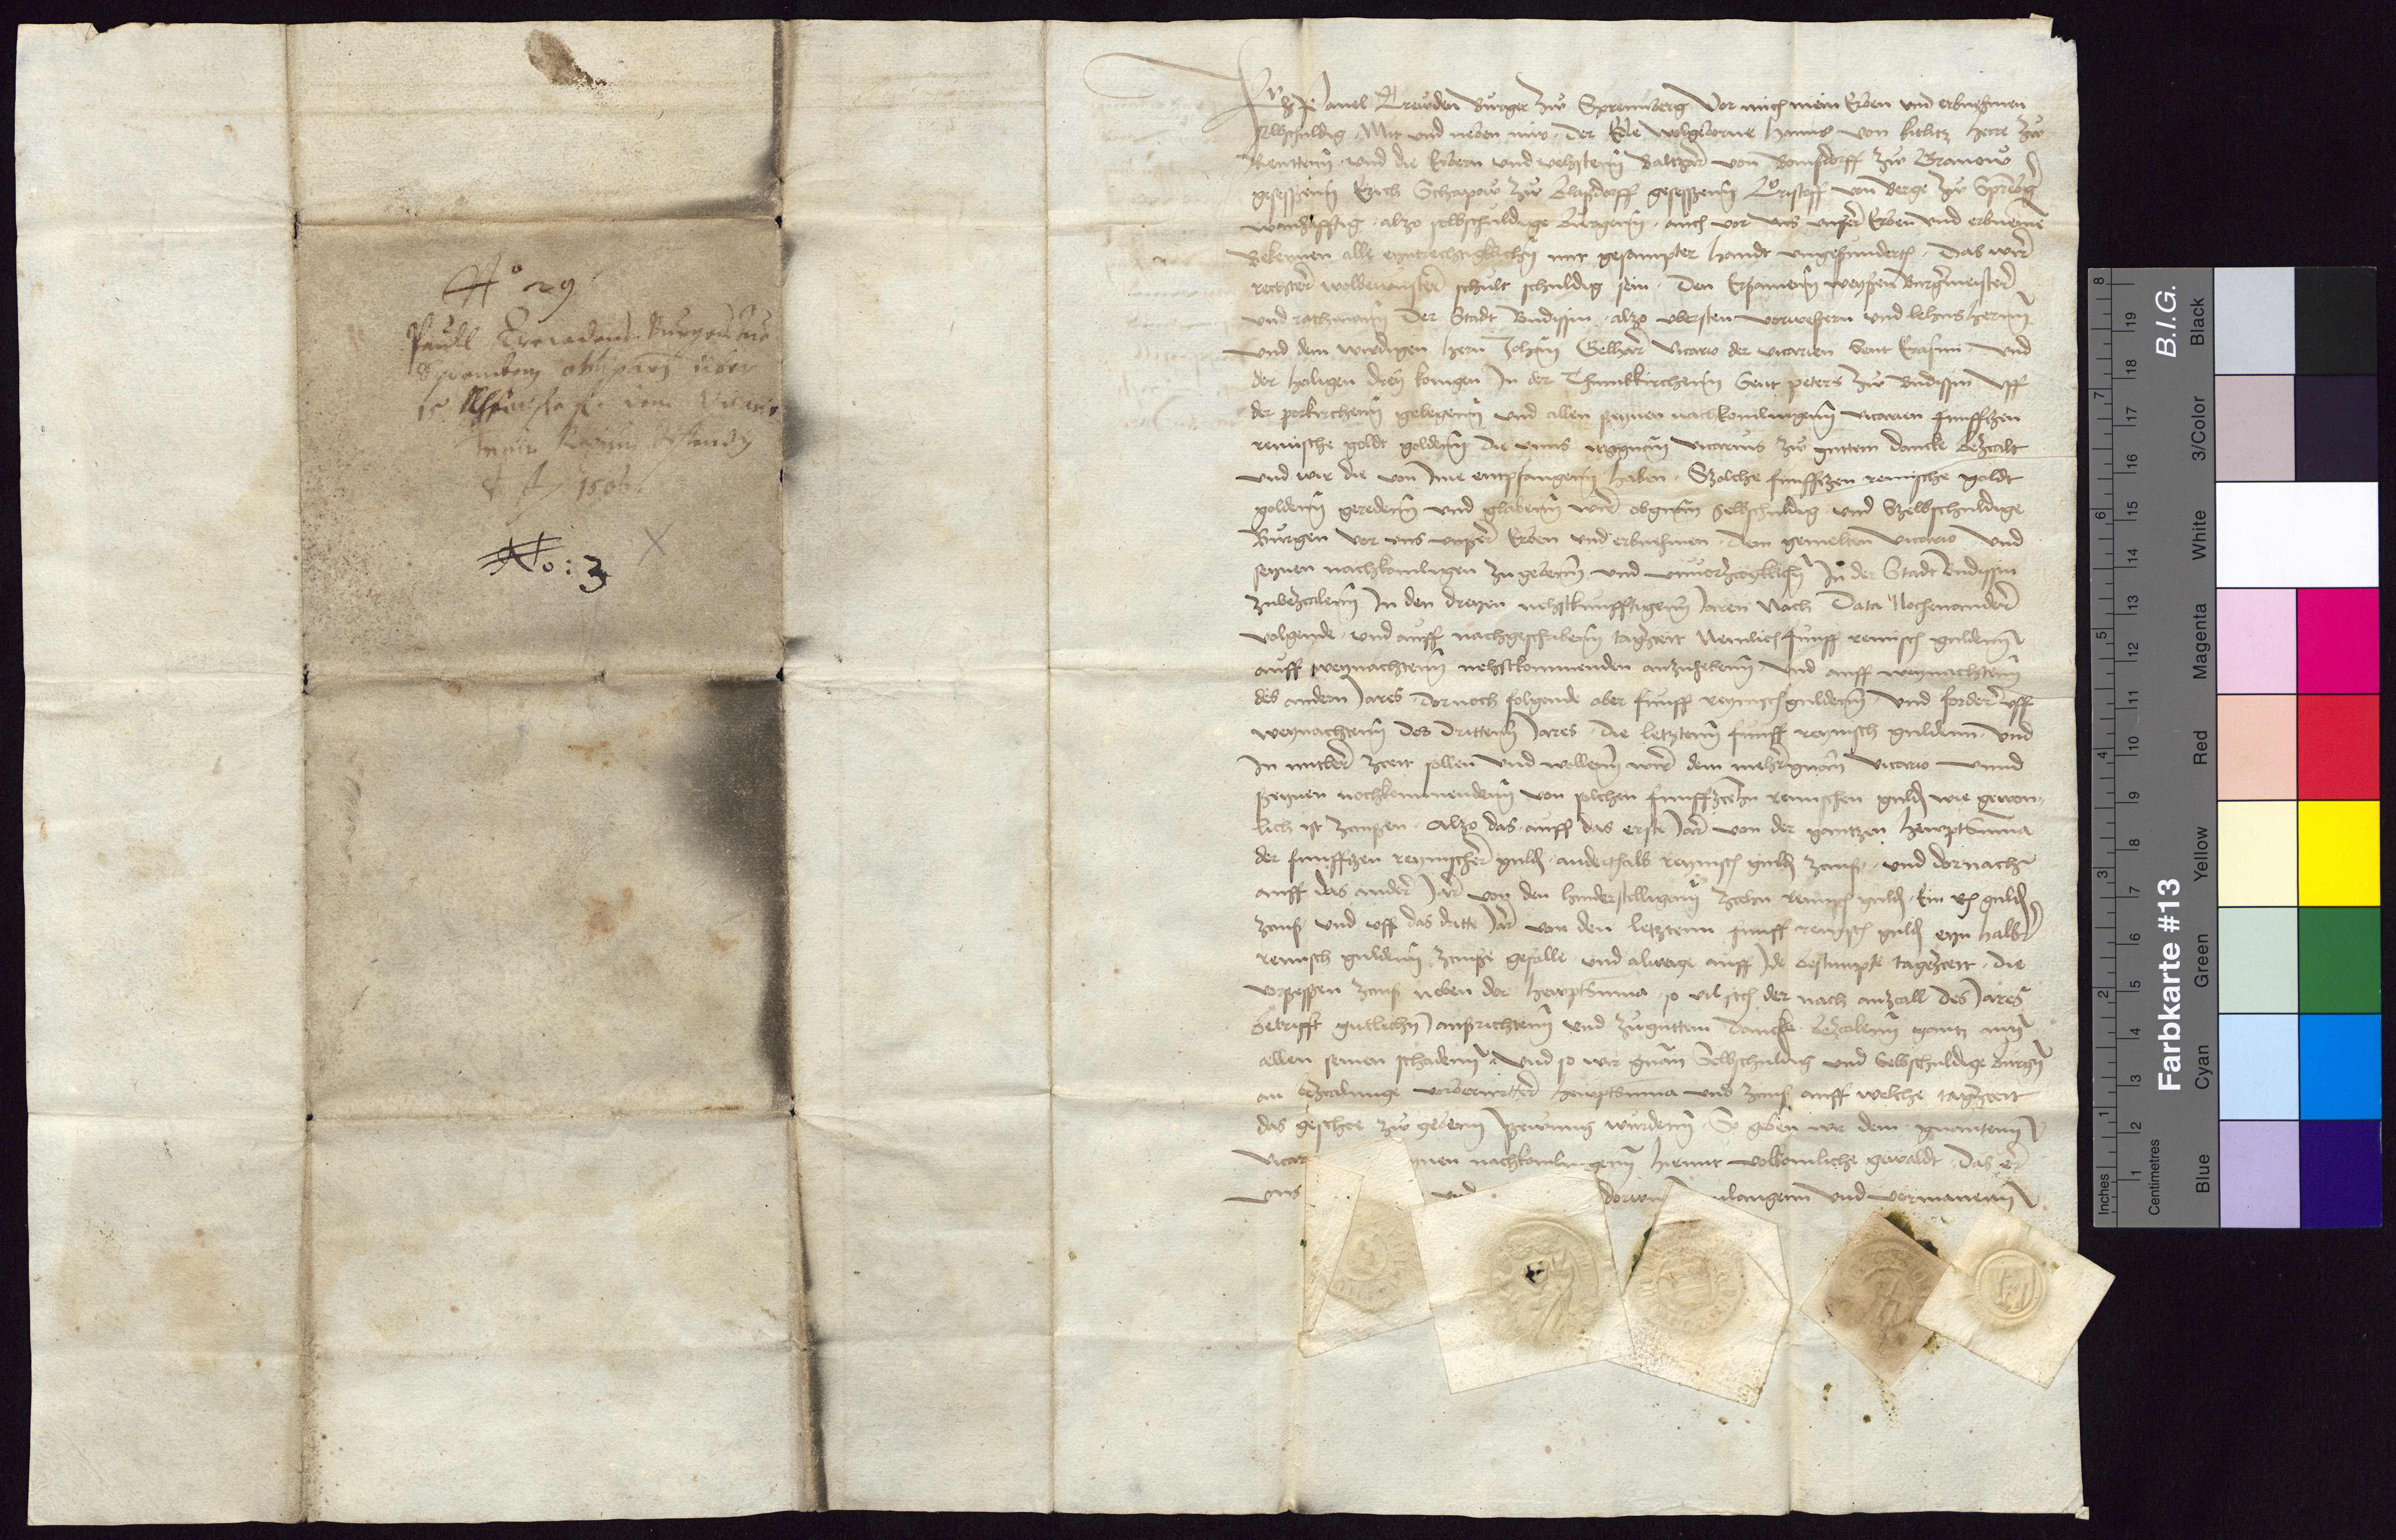 No 29
Paull Burger zue
Spremberg obligation uber
15
A 1506
No: 3 X
Ich Pauel Drewden Burger zw Spremberg Vor mich mein Erben und erbnehmen
selbschuldig Mit und neben mir der Edle Wolgeborne Hanns von kitlitz Herre zw
und die Erbern und vehsten Baltzar von Bomsdorff zw Branow
gesessenn Erich Schapow zw gesessenn Cristoff von Berge zw Sprebg
wonhafftig alzo selbschuldige Burgenn auch vor uns unser Erben und erbnemen
Bekennen alle eyntrechtiglichn mit gesampter Handt ungesundert Das wir
rechter wolbewuster schult schuldig sein Den Ersamenn weyßen Burgmeister
und rathmann der Stadt Budissin alzo ubersten vorwesern und lehns herrn
und dem wirdigen hern Johan Gebhar Vicario der vicarien Sent Erasmi und
der heiligen drey konigen In der Thumkirchenn Sent peters zw Budissin uff
der porkirchenn gelegenn und allen seynen nachkomlingenn vicarien funffzen
reinische goldt goldenn die unns itzgnan vicarius zw guttem dancke bezcalt
und wir die von Ime entpfangenn haben Szolche funffzen reinische goldt
goldenn geredenn und globenn wir obgnan selbschuldig und Szelbschuldige
Burgen vor uns unser Erben und erbnehmen dem gemelten vicario und
seynen nachkomligen zu gebenn und unverzcoglichn In der Stadt Budissin
zubezcalenn In den dreyen nehstkunfftigenn Jaren Nach Data Nochenander
volgende und auff nachgeschribenn tagzceit Nemlich funff reinisch guldenn
auff weynachtenn nehstkommenden anzuhebenn und auff weynachtenn
des andern Jares dornoch folgende aber funff reynisch guldenn und forder uff
weynachtenn des drittenn Jares die letztenn funff reynisch guldenn und
In mitler zceit sollen und wollenn wir dem mehrgnan vicario unnd
seynen nochkommendenn von solchen funffzcehn reinischen guld wie gewon-
lich ist zcinßen Alzo das auff das erste Jar von der gantzen hewptsumma
der funffzen reynischer guld anderthalb reynisch guld zcinß und dornach
auff das ander Jar von den hinderstelligenn zcehn reinisch guld Ein rh guld
zcinß und uff das dritte Jar von den letztenn funff reinisch guld eyn halbr
reinisch guldenn zcinße gefalle und alwege auff Ide bestimpte tagezceit die
vorsessen zcinß neben der hewptsumma so vil sich der nach anzcall des Jares
betrifft gutlichn außrichtenn und zu guttem dancke bezcalenn gantz an
allen seinen schadenn und so wir gnan Selbschuldig und Selbschuldige burgen
an bezcalunge vorberurter hewptsumma und zcinß auff welche tagzceit
das geschee zw gebenn sewmig wurdenn So geben wir dem gnantenn
Vicar nachkomlingenn hiemit volkomliche gewaldt das er
uns und und vormanenn